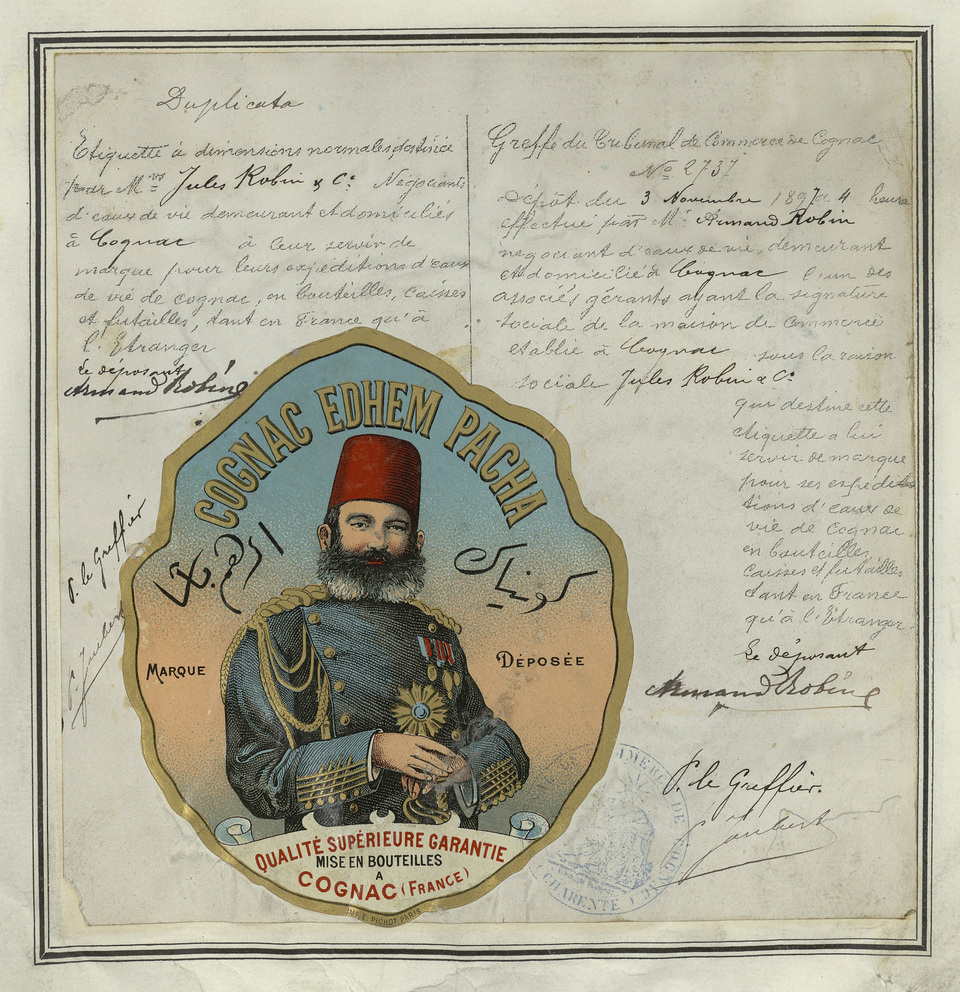 Duplicata
Etiquette à dimensions normales, destinée
par Mrs Jules Robin & Co Négociants
d'eaux de vie demeurant et domiciliés
à Cognac à leur servir de
marque pour leurs expéditions d'eaux
de vie de cognac, en bouteilles, caisses
et futailles, tant en France qu'à
l'Etranger
Le déposant
Armand Robin
Greffe du Tribunal de Commerce de Cognac
No 2737
Dépôt du 3 Novembre 1897 à 4 heures
effectué par Mr Armand Robin
négociant d'eaux de vie, demeurant
et domicilié à Cognac l'un des
associés gérants ayant la signature
sociale de la maison de Commerce
établie à Cognac sous la raison
sociale Jules Robin & Co
qui destine cette
étiquette à lui
servir de marque
pour ses expédi-
tions d'eaux de
vie de Cognac
en bouteilles,
caisses et futailles
tant en France
qu'à l'Etranger.
Le déposant
Armand Robin
P. le Greffier.
Joubert
P. le Greffier
Joubert
COGNAC EDHEM PACHA
ادهم پاشا
قونیاق
MARQUE DÉPOSÉE
QUALITÉ SUPÉRIEURE GARANTIE
MISE EN BOUTEILLES
A
COGNAC (FRANCE)
IMP. E. PICHOT, PARIS
COMMERCE DE COGNAC
CHARENTE